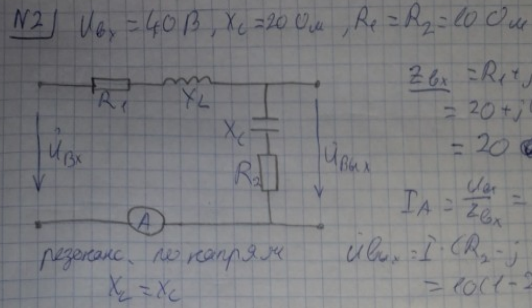 N2 Uвх = 40 В, Xc = 20 Ом, R1 = R2 = 10 Ом
R1
XL
Xc
R2
Uвх
Uвых
A
резонанс. по напряж
XL = Xc
Zвх = R1 + j
= 20 + j
= 20
IA = Uвх/Zвх =
Uвых = I · (R2 - j
= 10(1 -